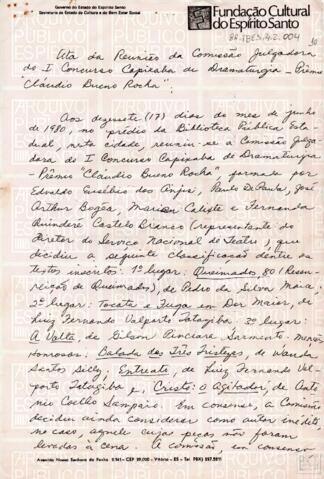 Governo do Estado do Espírito Santo
Secretaria de Estado da Cultura e do Bem Estar Social
Fundação Cultural
do Espírito Santo
BR.IBES.4.2.004
Ata da Reunião da Comissão Julgadora
do I Concurso Capixaba de Dramaturgia - Prêmio
"Cláudio Bueno Rocha".
Aos dezesete (17) dias do mes de junho
de 1980, no prédio da Biblioteca Pública Esta-
dual, nesta cidade, reuniu-se a Comissão Julga-
dora do I Concurso Capixaba de Dramaturgia
- Prêmio "Cláudio Bueno Rocha", formada por
Edvaldo Eusébio dos Anjos, Paulo DePaula, José
Arthur Bogéa, Marien Calixte e Fernanda
Quinderé Castelo Branco (representante do
Diretor do Serviço Nacional de Teatro), que
decidiu a seguinte classificação dentre os
textos inscritos: 1º lugar: Queimados, 80 (Ressur-
reição de Queimados), de Pedro da Silva Maia,
2º lugar: Tocata e Fuga em Dor Maior, de
Luiz Fernando Valporto Tatagiba. 3º lugar:
A Volta, de Gilson Sarmento. Menções
Honrosas: Calada das Três Tristezas, de Wanda
Santos Silly, Entreato, de Luiz Fernando Val-
porto Tatagiba e, Cristo: o Agitador, de Antô-
nio Coelho Sampaio. Em consenso, a Comissão
decidiu ainda considerar como autor inédito
no caso, aquele cujas peças não foram
levadas à cena. A comissão em consenso
Avenida Nossa Senhora da Penha - Vitória - ES